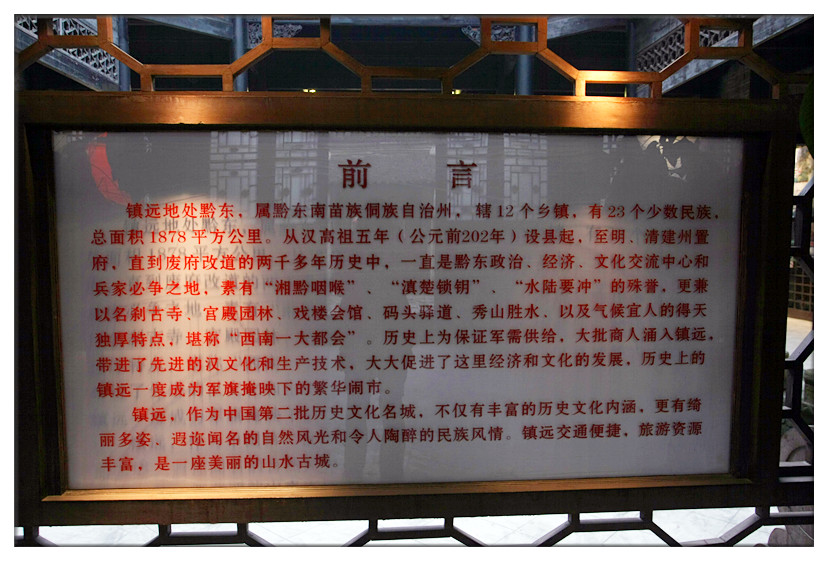 前言
镇远地处黔东，属黔东南苗族侗族自治州，辖12个乡镇，有23个少数民族，
总面积1878平方公里。从汉高祖五年（公元前202年）设县起，至明、清建州置
府，直到废府改道的两千多年历史中，一直是黔东政治、经济、文化交流中心和
兵家必争之地，素有“湘黔咽喉”、“滇楚锁钥”、“水陆要冲”的殊誉，更兼
以名刹古寺、宫殿园林、戏楼会馆、码头驿道、秀山胜水、以及气候宜人的得天
独厚特点，堪称“西南一大都会”。历史上为保证军需供给，大批商人涌入镇远，
带进了先进的汉文化和生产技术，大大促进了这里经济和文化的发展，历史上的
镇远一度成为军旗掩映下的繁华闹市。
镇远，作为中国第二批历史文化名城，不仅有丰富的历史文化内涵，更有绮
丽多姿、遐迩闻名的自然风光和令人陶醉的民族风情。镇远交通便捷，旅游资源
丰富，是一座美丽的山水古城。